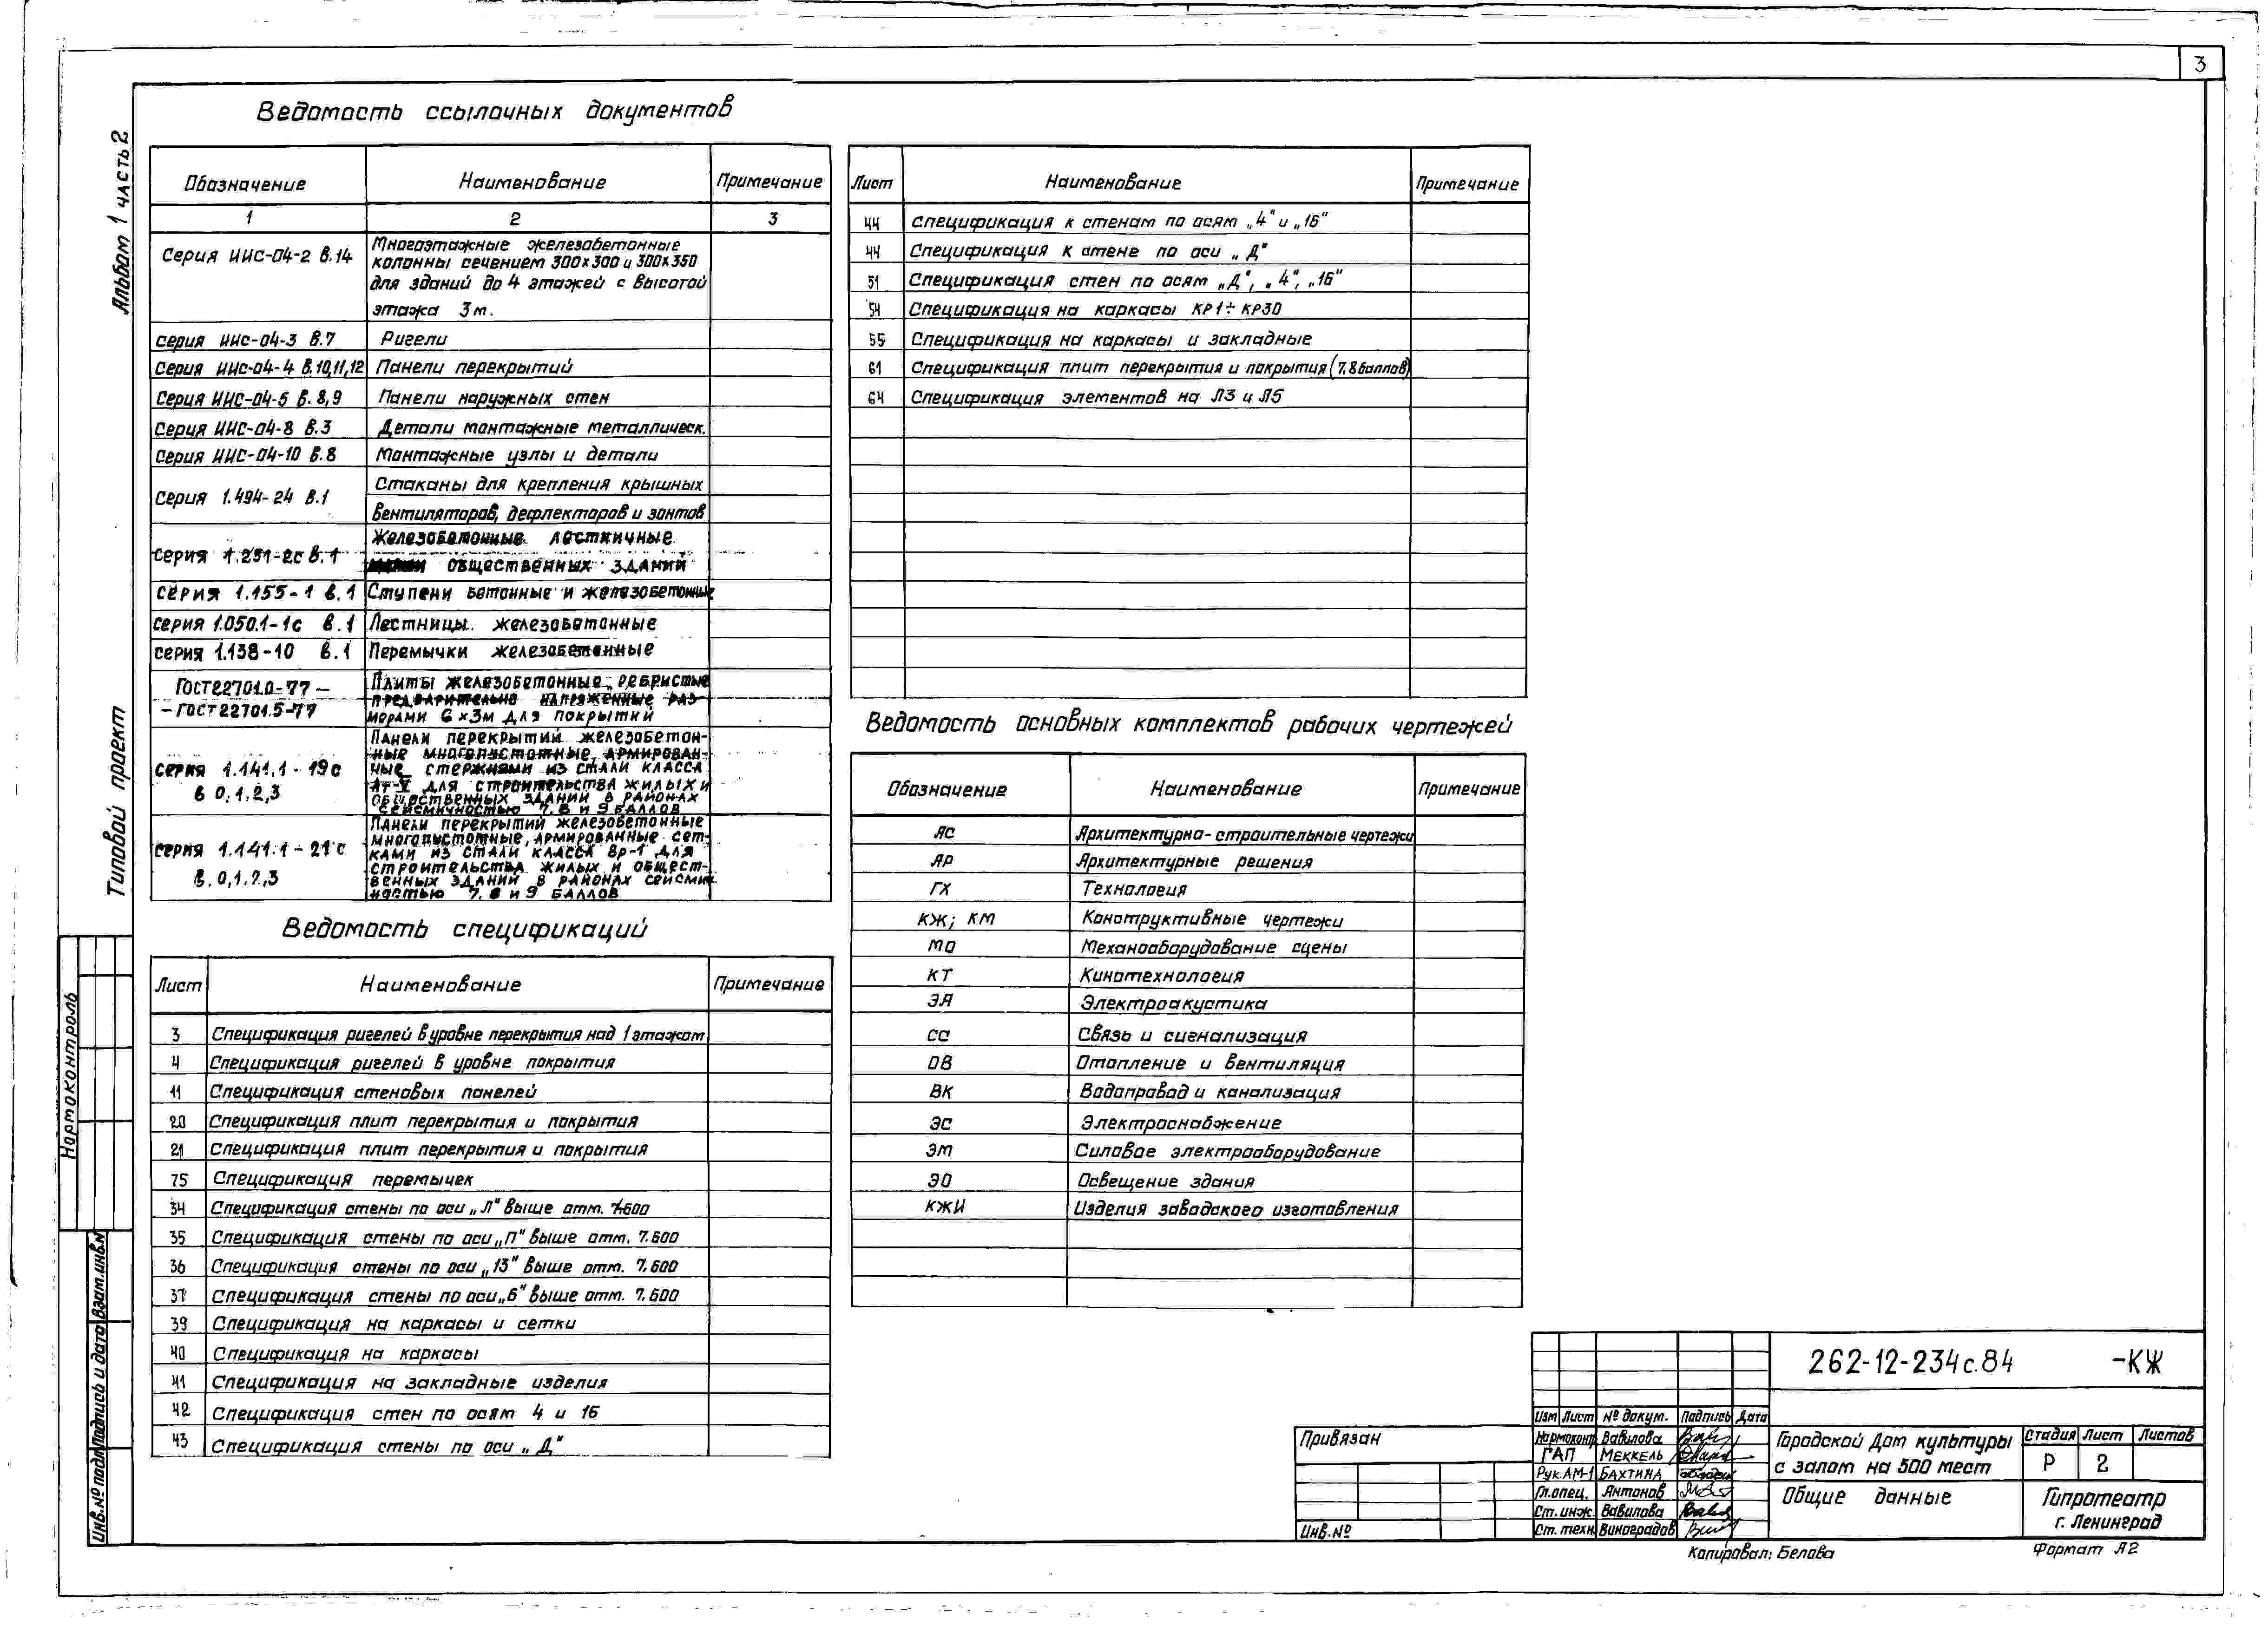 3
Альбом 1 часть 2
Типовой проект
Нормоконтроль
Взам.инв.№
Подпись и дата
Инв.№ подл.
Ведомость ссылочных документов
Обозначение Наименование Примечание
1 2 3
Серия ИИС-04-2 в.14 Многоэтажные железобетонные
колонны сечением 300х300 и 300х350
для зданий до 4 этажей с высотой
этажа 3м.
серия ИИС-04-3 в.7 Ригели
Серия ИИС-04-4 в.10,11,12 Панели перекрытий
Серия ИИС-04-5 в.8,9 Панели наружных стен
Серия ИИС-04-8 в.3 Детали монтажные металлическ.
Серия ИИС-04-10 в.8 Монтажные узлы и детали
Серия 1.494-24 в.1 Стаканы для крепления крышных
вентиляторов, дефлекторов и зонтов
серия 1.251-2с в.1 Железобетонные лестничные
общественных зданий
серия 1.155-1 в.1 Ступени бетонные и железобетонные
серия 1.050.1-1с в.1 Лестницы железобетонные
серия 1.138-10 в.1 Перемычки железобетонные
ГОСТ22701.0-77 –
– ГОСТ22701.5-77
Плиты железобетонные, ребристые
предварительно напряженные раз-
мерами 6х3м для покрытий
серия 1.141.1-19с
в 0,1,2,3
Панели перекрытий железобетон-
ные многопустотные, армирован-
ные стержнями из стали класса
Ат-V для строительства жилых и
общественных зданий в районах
сейсмичностью 7,8 и 9 баллов
серия 1.141.1-21с
в.0,1,2,3
Панели перекрытий железобетонные
многопустотные, армированные сет-
ками из стали класса Вр-1 для
строительства жилых и общест-
венных зданий в районах сейсмич-
ностью 7,8 и 9 баллов
Ведомость спецификаций
Лист Наименование Примечание
3 Спецификация ригелей в уровне перекрытия над 1 этажом
4 Спецификация ригелей в уровне покрытия
11 Спецификация стеновых панелей
20 Спецификация плит перекрытия и покрытия
21 Спецификация плит перекрытия и покрытия
75 Спецификация перемычек
34 Спецификация стены по оси „Л“ выше отм. 7.600
35 Спецификация стены по оси „П“ выше отм. 7.600
36 Спецификация стены по оси „13“ выше отм. 7.600
37 Спецификация стены по оси „6“ выше отм. 7.600
39 Спецификация на каркасы и сетки
40 Спецификация на каркасы
41 Спецификация на закладные изделия
42 Спецификация стен по осям 4 и 16
43 Спецификация стены по оси „Д“
Лист Наименование Примечание
44 Спецификация к стенам по осям „4“ и „16“
44 Спецификация к стене по оси „Д“
51 Спецификация стен по осям „Д“, „4“, „16“
54 Спецификация на каркасы КР1÷КР30
55 Спецификация на каркасы и закладные
61 Спецификация плит перекрытия и покрытия (7,8 баллов)
64 Спецификация элементов на Л3 и Л5
Ведомость основных комплектов рабочих чертежей
Обозначение Наименование Примечание
АС Архитектурно-строительные чертежи
АР Архитектурные решения
ГХ Технология
КЖ; КМ Конструктивные чертежи
МО Механооборудование сцены
КТ Кинотехнология
ЭА Электроакустика
СС Связь и сигнализация
ОВ Отопление и вентиляция
ВК Водопровод и канализация
ЭС Электроснабжение
ЭМ Силовое электрооборудование
ЭО Освещение здания
КЖИ Изделия заводского изготовления
Привязан
Инв.№
262-12-234с.84 -КЖ
Изм Лист № докум. Подпись Дата
Нормоконтр. Вавилова
ГАП Меккель
Рук.АМ-1 Бахтина
Гл.спец. Антонов
Ст.инж. Вавилова
Ст.техн. Виноградов
Городской Дом культуры
с залом на 500 мест
Стадия Лист Листов
Р 2
Общие данные
Гипротеатр
г. Ленинград
Копировал: Белова
Формат А2